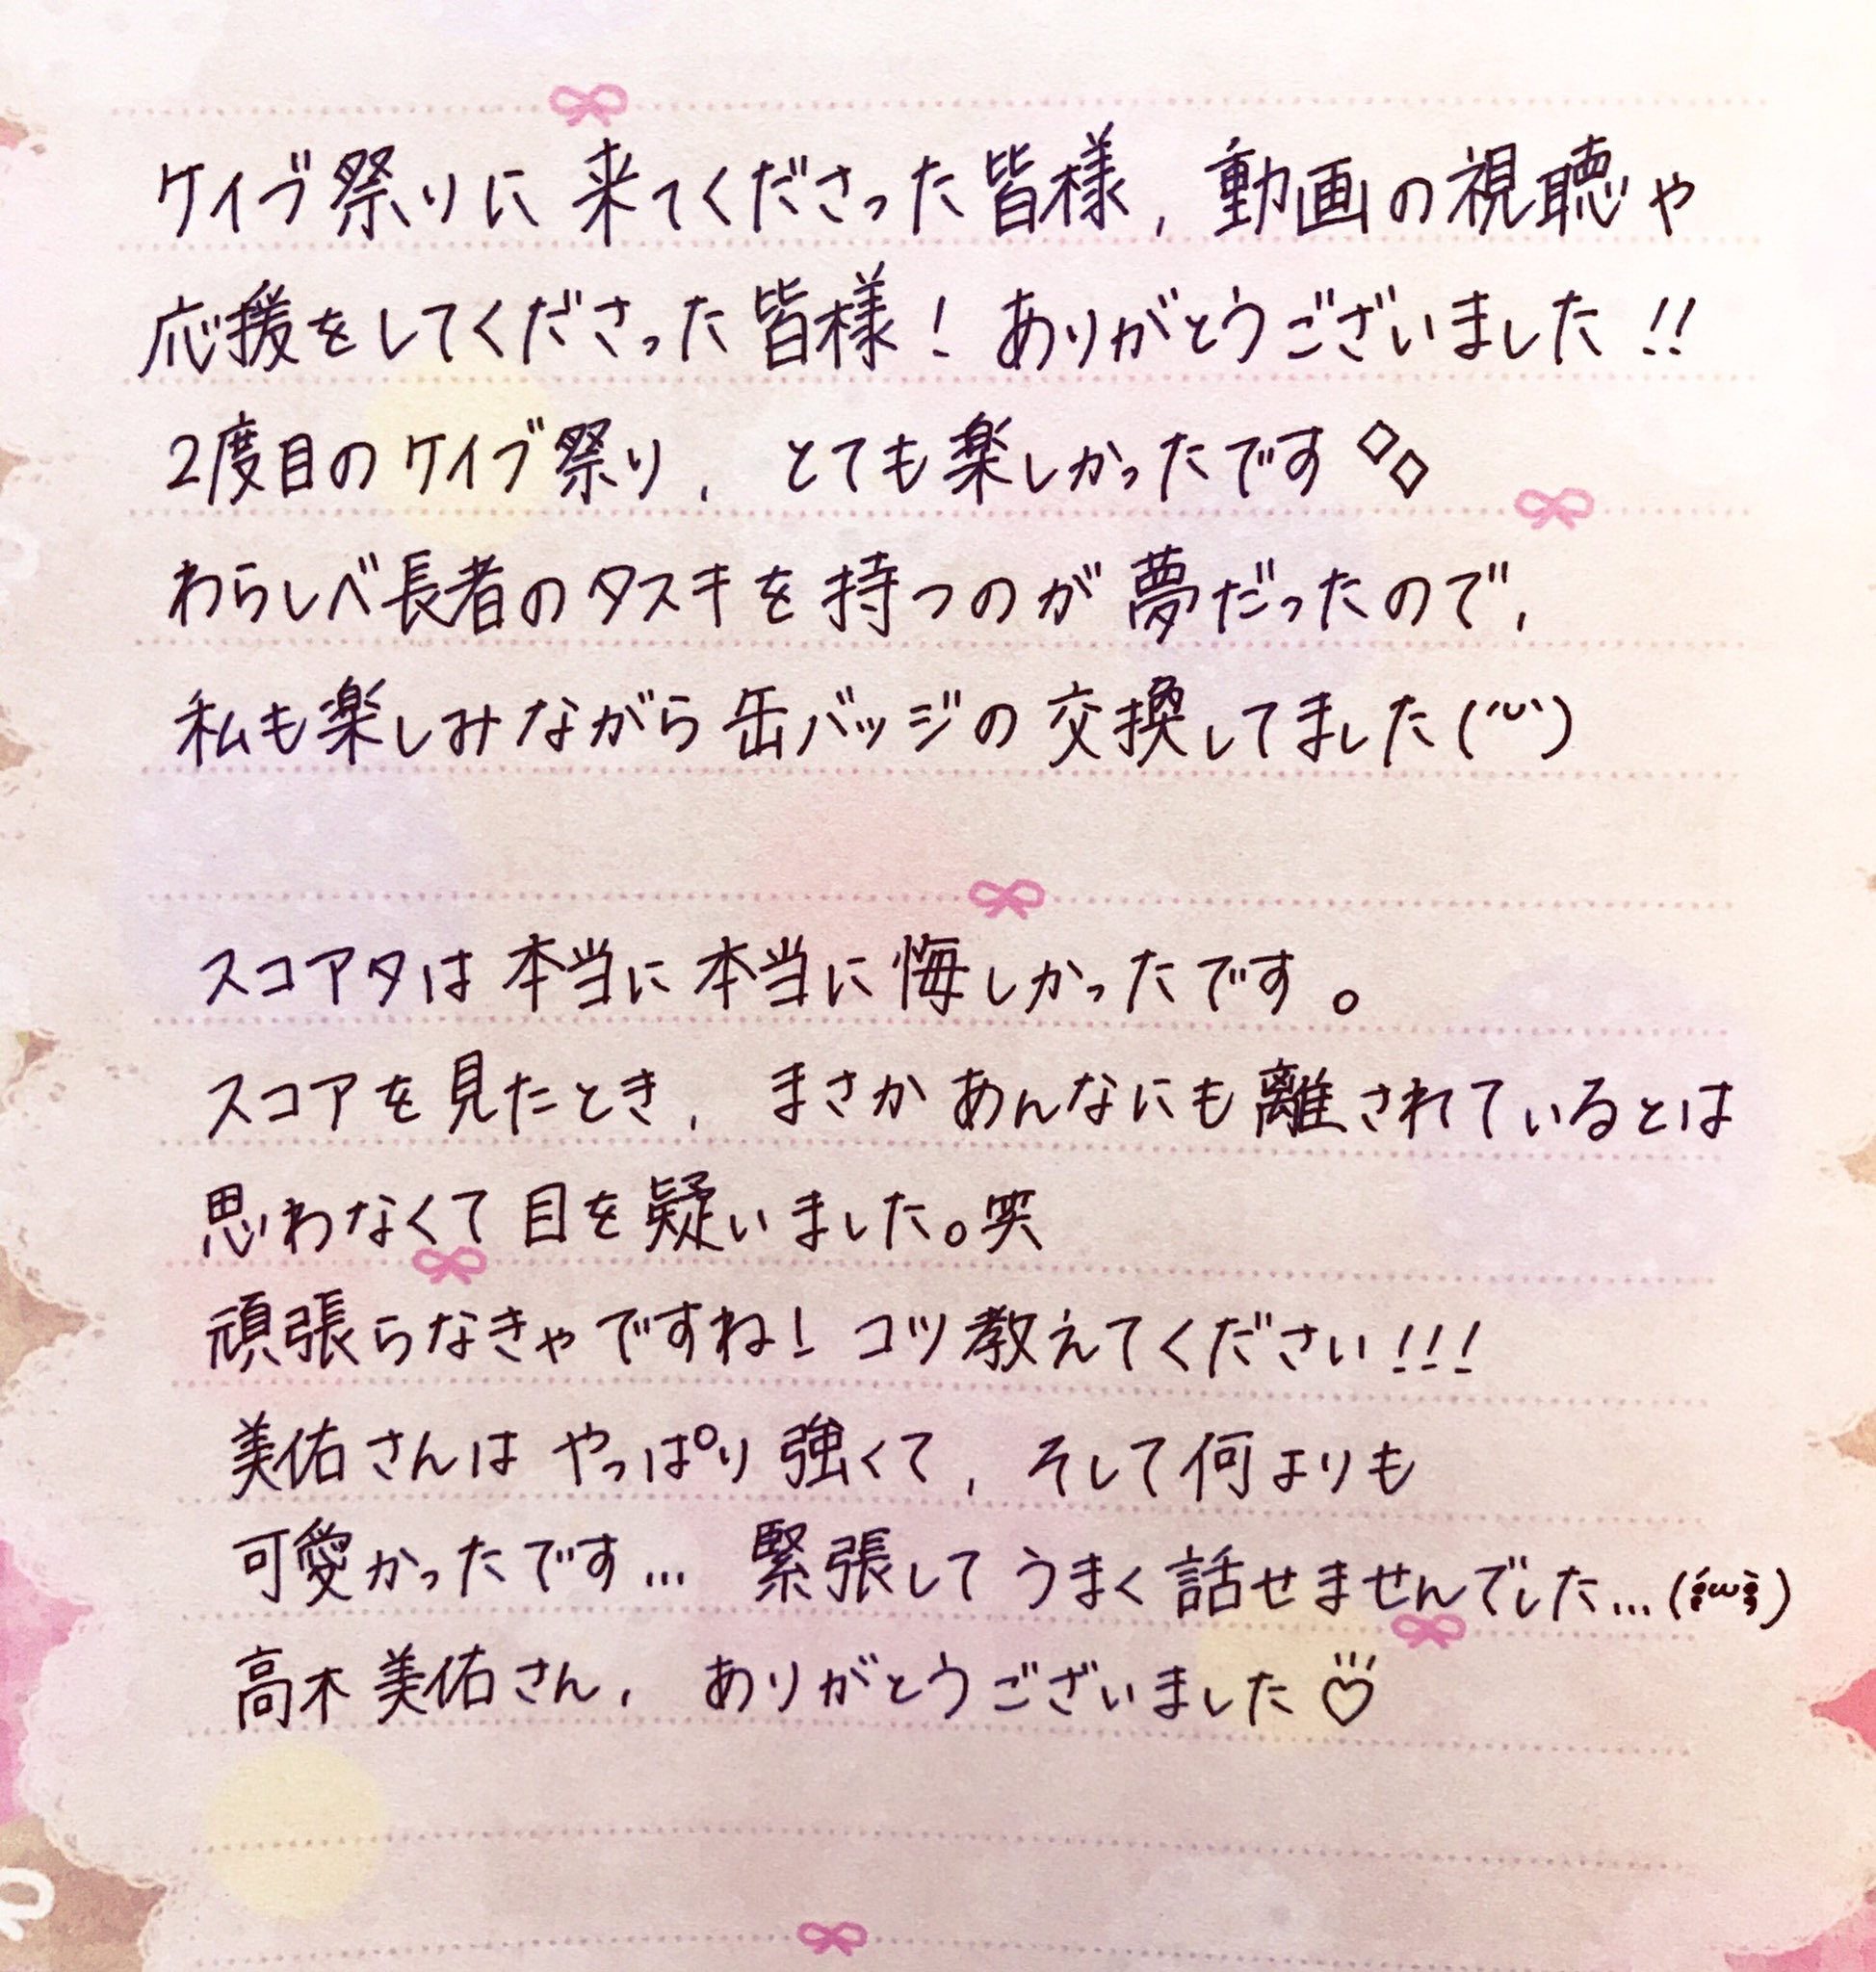 ケイブ祭りに来てくださった皆様, 動画の視聴や
応援をしてくださった皆様！ありがとうございました!!
2度目のケイブ祭り, とても楽しかったです◇◇
わらしべ長者のタスキを持つのが夢だったので,
私も楽しみながら缶バッジの交換してました(˘ᵕ˘)
スコアタは本当に本当に悔しかったです。
スコアを見たとき, まさかあんなにも離されているとは
思わなくて目を疑いました。笑
頑張らなきゃですね！コツ教えてください!!!
美佑さんはやっぱり強くて, そして何よりも
可愛かったです… 緊張してうまく話せませんでした…(;´ω`;)
高木美佑さん, ありがとうございました♡